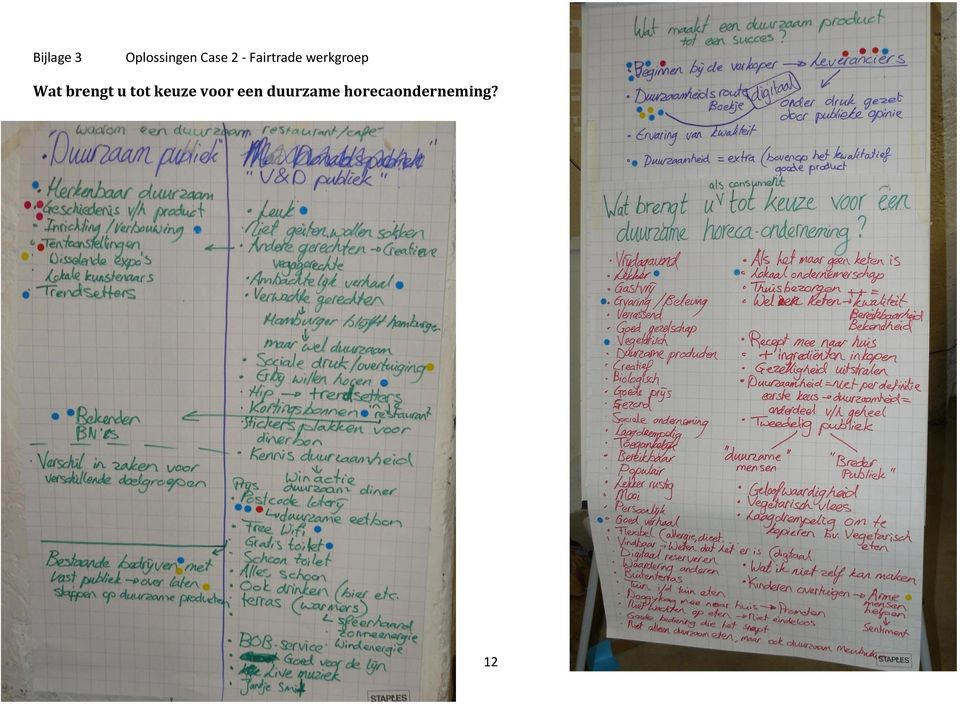 Bijlage 3 Oplossingen Case 2 - Fairtrade werkgroep
Wat brengt u tot keuze voor een duurzame horecaonderneming?
waarom een duurzaam restaurant/cafe
"Duurzaam publiek"
• Herkenbaar duurzaam
• Geschiedenis v/h product
• Inrichting/verbouwing
• Tentoonstellingen
Wisselende expo's
• Lokale kunstenaars
• Trendsetters
• Bekenden
BN'es
• Verschil in zaken voor
verschillende doelgroepen
Bestaande bedrijven met
vast publiek → over laten
stappen op duurzame producten
"V&D publiek"
• Leuk
• Niet geiten wollen sokken
• Andere gerechten → Creatieve
vegagerechte
• Ambachtelijk verhaal
• Verwachte gerechten
↓
Hamburger blijft hamburger
↓
maar wel duurzaam
• Sociale druk/overtuiging
• Erbij willen horen
• Hip → trendsetters
in 't restaurant
• Kortingsbonnen
• Stickers plakken voor
dinerbon
• Kennis duurzaamheid
↓
Win actie
Prijs duurzaam diner
• Postcode loterij
↳ duurzame eetbon
• Free Wifi
• Gratis toilet
• Schoon toilet
• Alles schoon
• Ook drinken (bier etc.
• terras (warmers)
↳ sfeerhaard
zonneenergie
• BOB-service windenergie
Goed voor de lijn
Live muziek
• Jantje Smit
STAPLES
Wat maakt een duurzaam product
tot een succes?
• Beginnen bij de verkoper → Leveranciers
• Duurzaamheidsroute digitaal
Boekje
onder druk gezet
door publieke opinie
• Ervaring van kwaliteit
• Duurzaamheid = extra (bovenop het kwalitatief
goede product
als consument
Wat brengt u tot keuze voor een
duurzame horeca-onderneming?
• Vrijdagavond
• Lekker
• Gastvrij
• Ervaring/Beleving
• Verrassend
• Goed gezelschap
• Vegetarisch
• Duurzame producten
• Creatief
• Biologisch
• Goede prijs
• Gezond
• Sociale onderneming
• Laagdrempelig
• Toegankelijk
• Bereikbaar
• Populair
• Lekker rustig
• Mooi
• Persoonlijk
• Goed verhaal
• Flexibel (allergie, dieet
• Vindbaar → Weten dat het er is (digitaal
• Digitaal reserveren
• Waardering anderen
• Buitenterras
• Tuin i/d tuin eten
• Doggybag mee naar huis → Promoten
• Niet wachten op eten → Niet eindeloos
• Goede bediening die het snapt
• Niet alleen duurzaam eten, maar ook duurzaam meubulair
• Als het maar geen keten is
• Lokaal ondernemerschap
• Thuisbezorgen ++ =
• Wel keten → kwaliteit
Bereikbaarheid
Bekendheid
• Recept mee naar huis
• + ingrediënten inkopen
• Gezelligheid uitstralen
• Duurzaamheid = niet per definitie
eerste keus → duurzaamheid =
onderdeel v/h geheel
• Tweedelig publiek
"duurzame"
mensen
"Breder
Publiek"
• Geloofwaardigheid
• Vegetarisch vlees
• Laagdrempelig om te
kopieren bv. vegetarisch
eten
• Wat ik niet zelf kan maken
• Kinderen overtuigen → Arme
mensen
helpen
↓
Sentiment
STAPLES
12